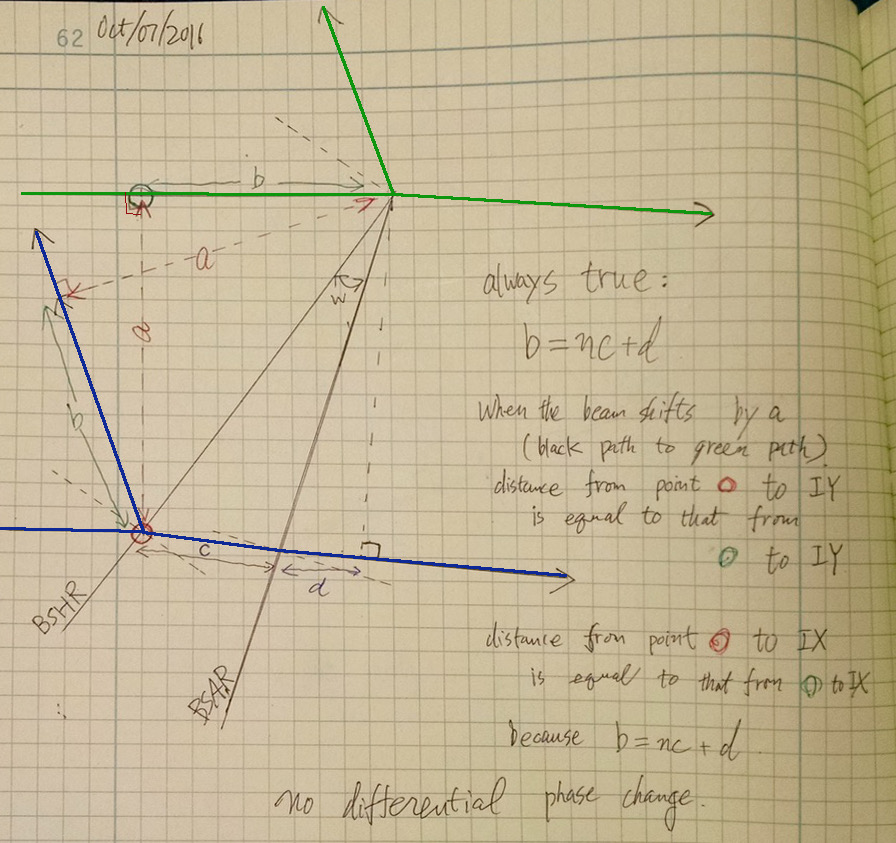 62 Oct/07/2016
b
a
w
a
b
c
d
BSHR
BSAR
always true:
b = nc + d
When the beam shifts by a
(black path to green path)
distance from point O to IY
is equal to that from
O to IY
distance from point O to IX
is equal to that from O to IX
because b = nc + d
no differential phase change.